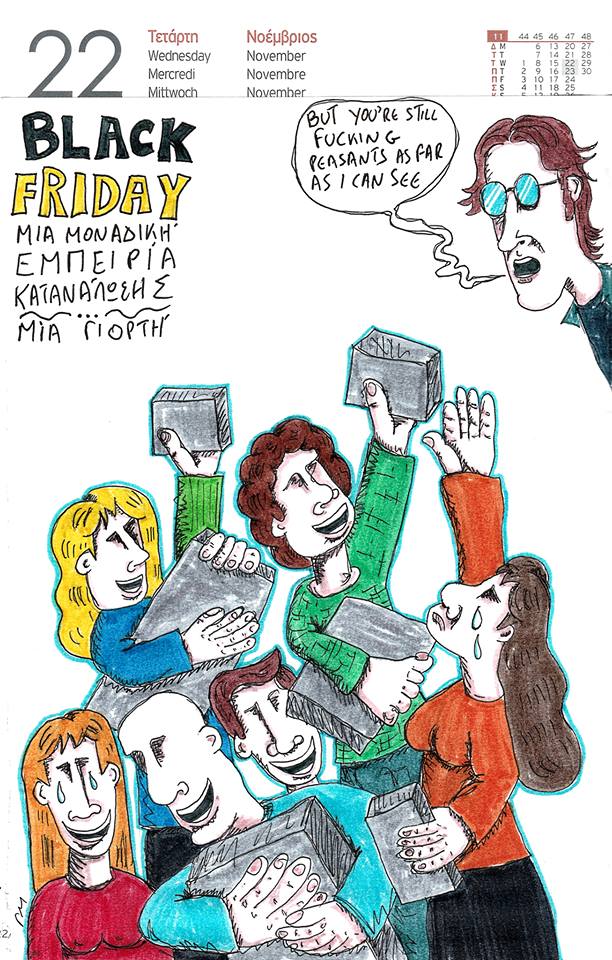 22
Τετάρτη
Wednesday
Mercredi
Mittwoch
Νοέμβριος
November
Novembre
November
11 44 45 46 47 48
Δ M 6 13 20 27
Τ T 7 14 21 28
Τ W 1 8 15 22 29
Π T 2 9 16 23 30
Π F 3 10 17 24
Σ S 4 11 18 25
BLACK
FRIDAY
ΜΙΑ ΜΟΝΑΔΙΚΗ
ΕΜΠΕΙΡΙΑ
ΚΑΤΑΝΑΛΩΣΗΣ
...
ΜΙΑ ΓΙΟΡΤΗ
BUT YOU'RE STILL
FUCKING
PEASANTS AS FAR
AS I CAN SEE